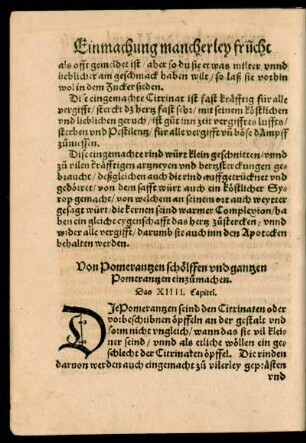 Einmachung mancherley früche
als offt gemeldet ist / aber so du sie etwas milter vnnd
lieblicher am geschmack haben wilt / so laß sie vorhin
wol in dem Zucker sieden.
Dise eingemachte Citrinat ist fast krefftig für alle
vergifft / sterckt dz hertz fast sehr / mit seinen köstlichen
vnd lieblichen geruch / ist gůt inn zeit vergifftes luffts /
sterben vnd Pestilentz / für alle vergifft vñ böse dämpff
zůniessen.
Dise eingemachte rind würt klein geschnitten / vnnd
zů vilen krefftigen artzneyen vnd hertzsterckungen ge-
braucht / deßgleichen auch die rind aussgetrücknet vnd
gedörret / von dem safft würt auch ein köstlicher Sy-
rop gemacht / von welchem an seinem ort auch weytter
gesagt würt / die kernen seind warmer Complexion / ha
ben ein gleiche eygenschafft das hertz zůstercken / vnnd
wider alle vergifft / darumb sie auch inn den Apotecken
behalten werden.
Von Pomerantzen schölffen vnd gantzen
Pomerantzen einzůmachen.
Das XIIII. Capitel.
DIe Pomerantzen seind den Citrinaten oder
vorbeschribnen öpffeln an der gestalt vnd
form nicht vngleich / wann das sie vil klei-
ner seind / vnnd als etliche wöllen ein ge-
schlecht der Citrinaten öpffel. Die rinden
daruon werden auch eingemacht zů vilerley geprästen
vnd